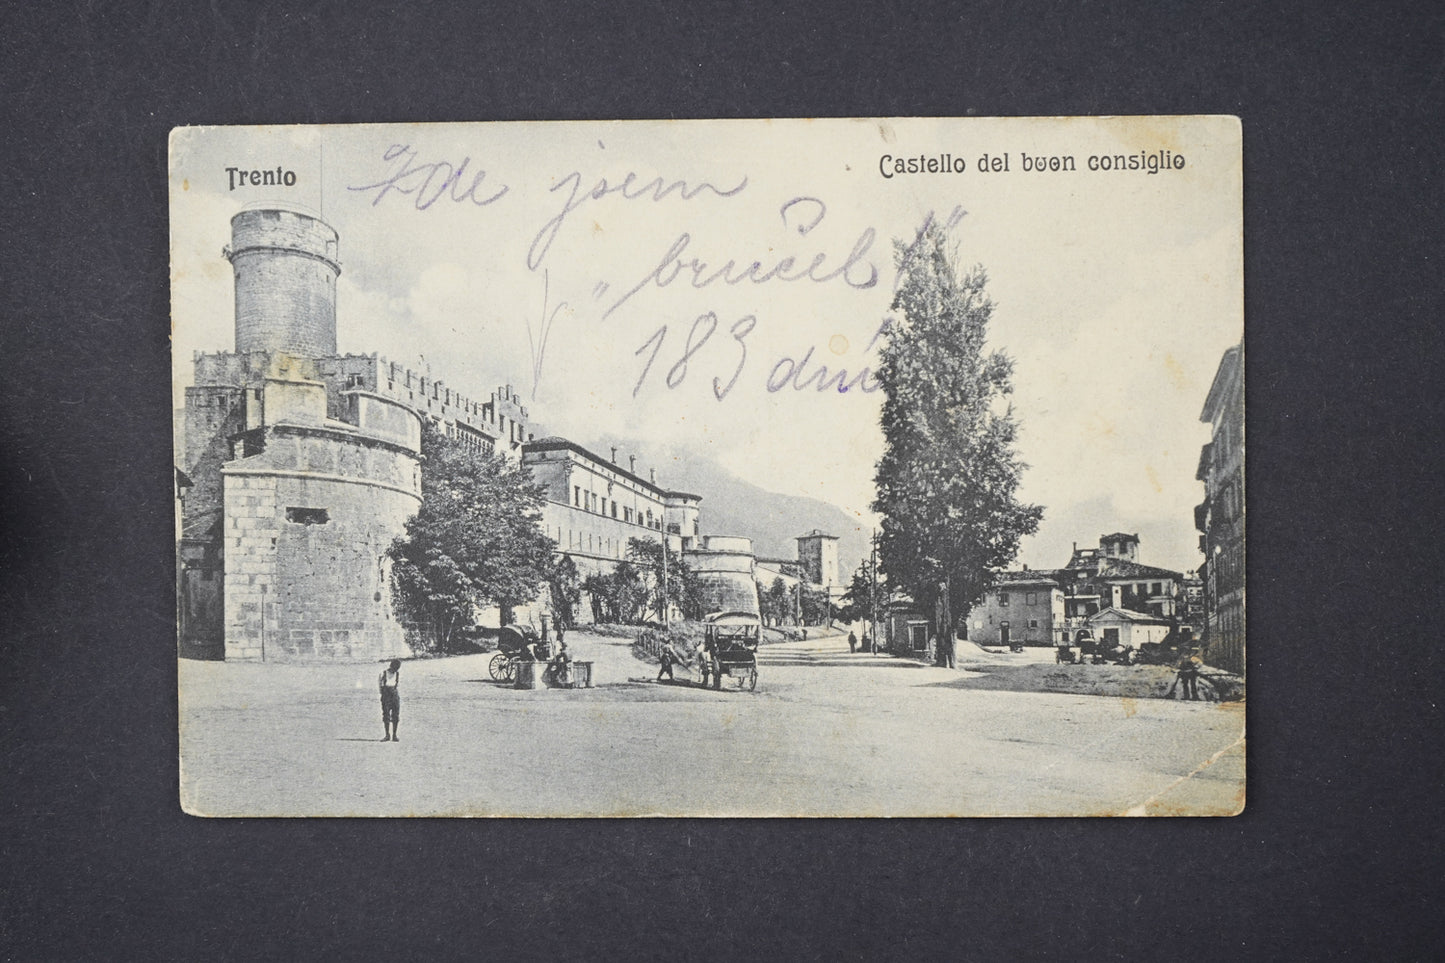 Trento
Castello del buon consiglio
Zde jsem
„bručel"
183 dní